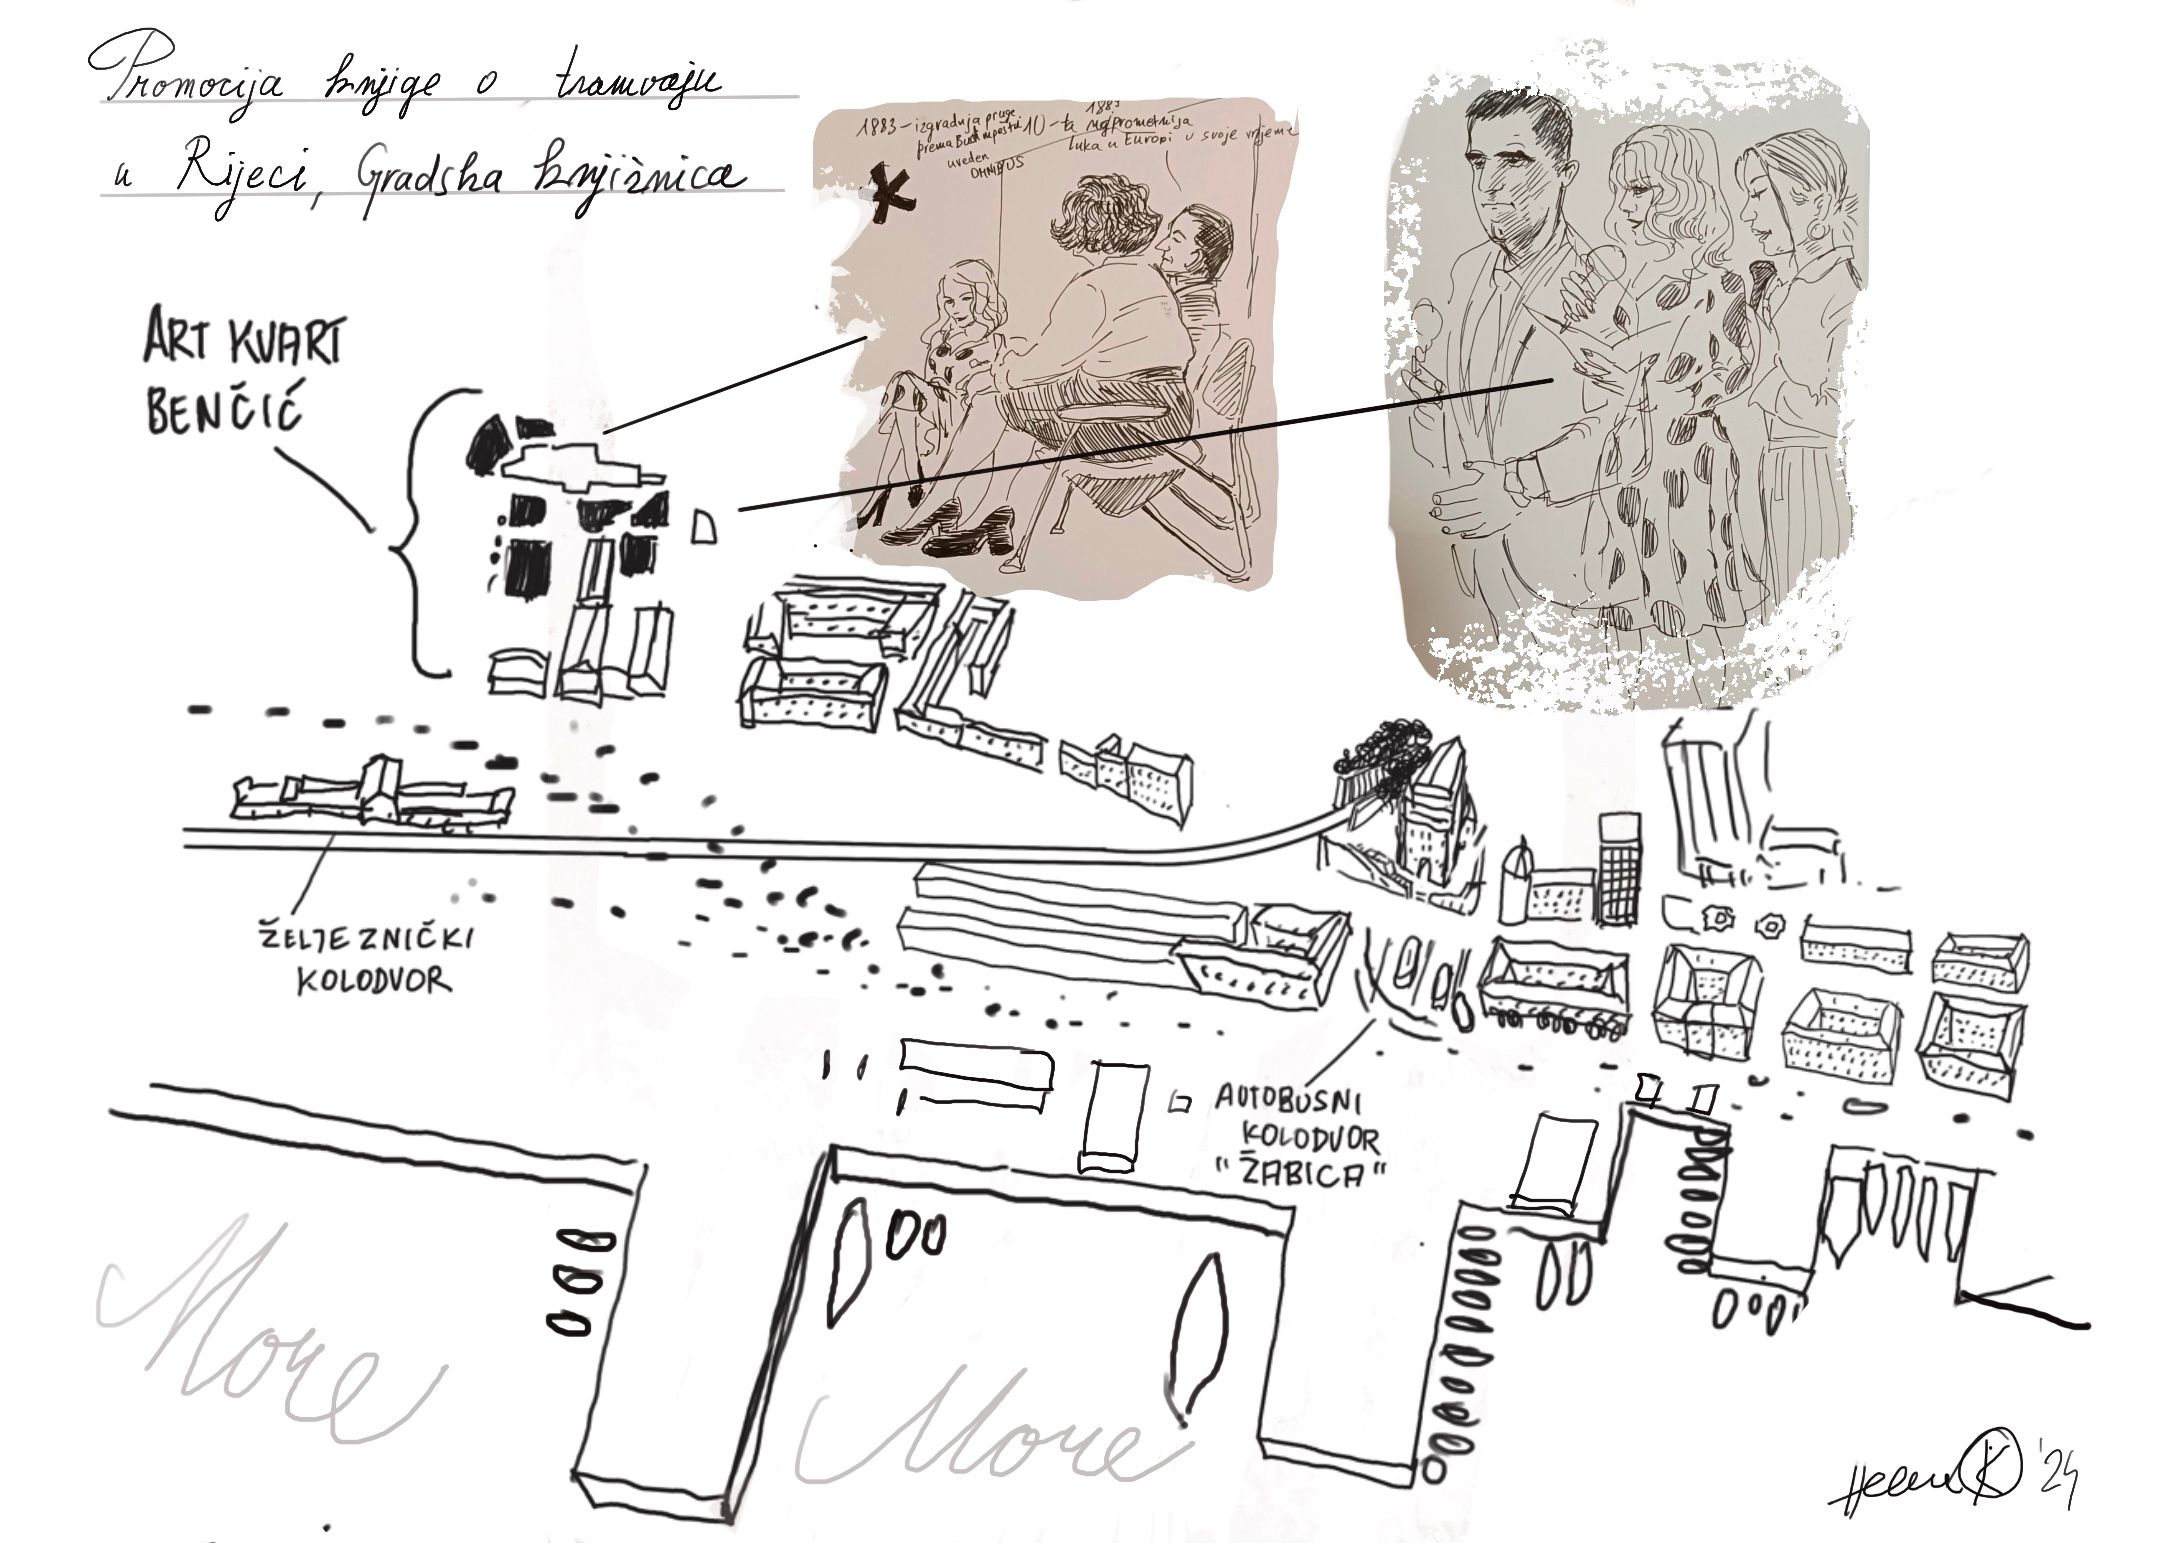 Promocija knjige o tramvaju
u Rijeci, Gradska knjižnica
1883 – izgradnja pruge
prema Budimpešti
uveden
OMNIBUS
1883
10-ta najprometnija
luka u Europi u svoje vrijeme
ART KVART
BENČIĆ
ŽELJEZNIČKI
KOLODVOR
AUTOBUSNI
KOLODVOR
"ŽABICA"
More
More
Helena K '24